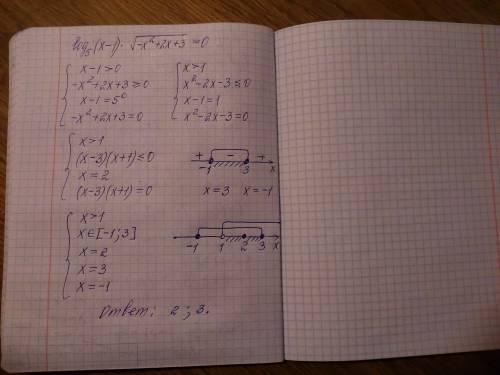 log₅(x-1)·√(-x²+2x+3) =0
x-1>0
-x²+2x+3≥0
x-1=5⁰
-x²+2x+3=0
x>1
x²-2x-3≤0
x-1=1
x²-2x-3=0
x>1
(x-3)(x+1)≤0
x=2
(x-3)(x+1)=0
+ - +
-1 3 x
x=3 x=-1
x>1
x∈[-1;3]
x=2
x=3
x=-1
-1 1 2 3 x
Ответ: 2; 3.